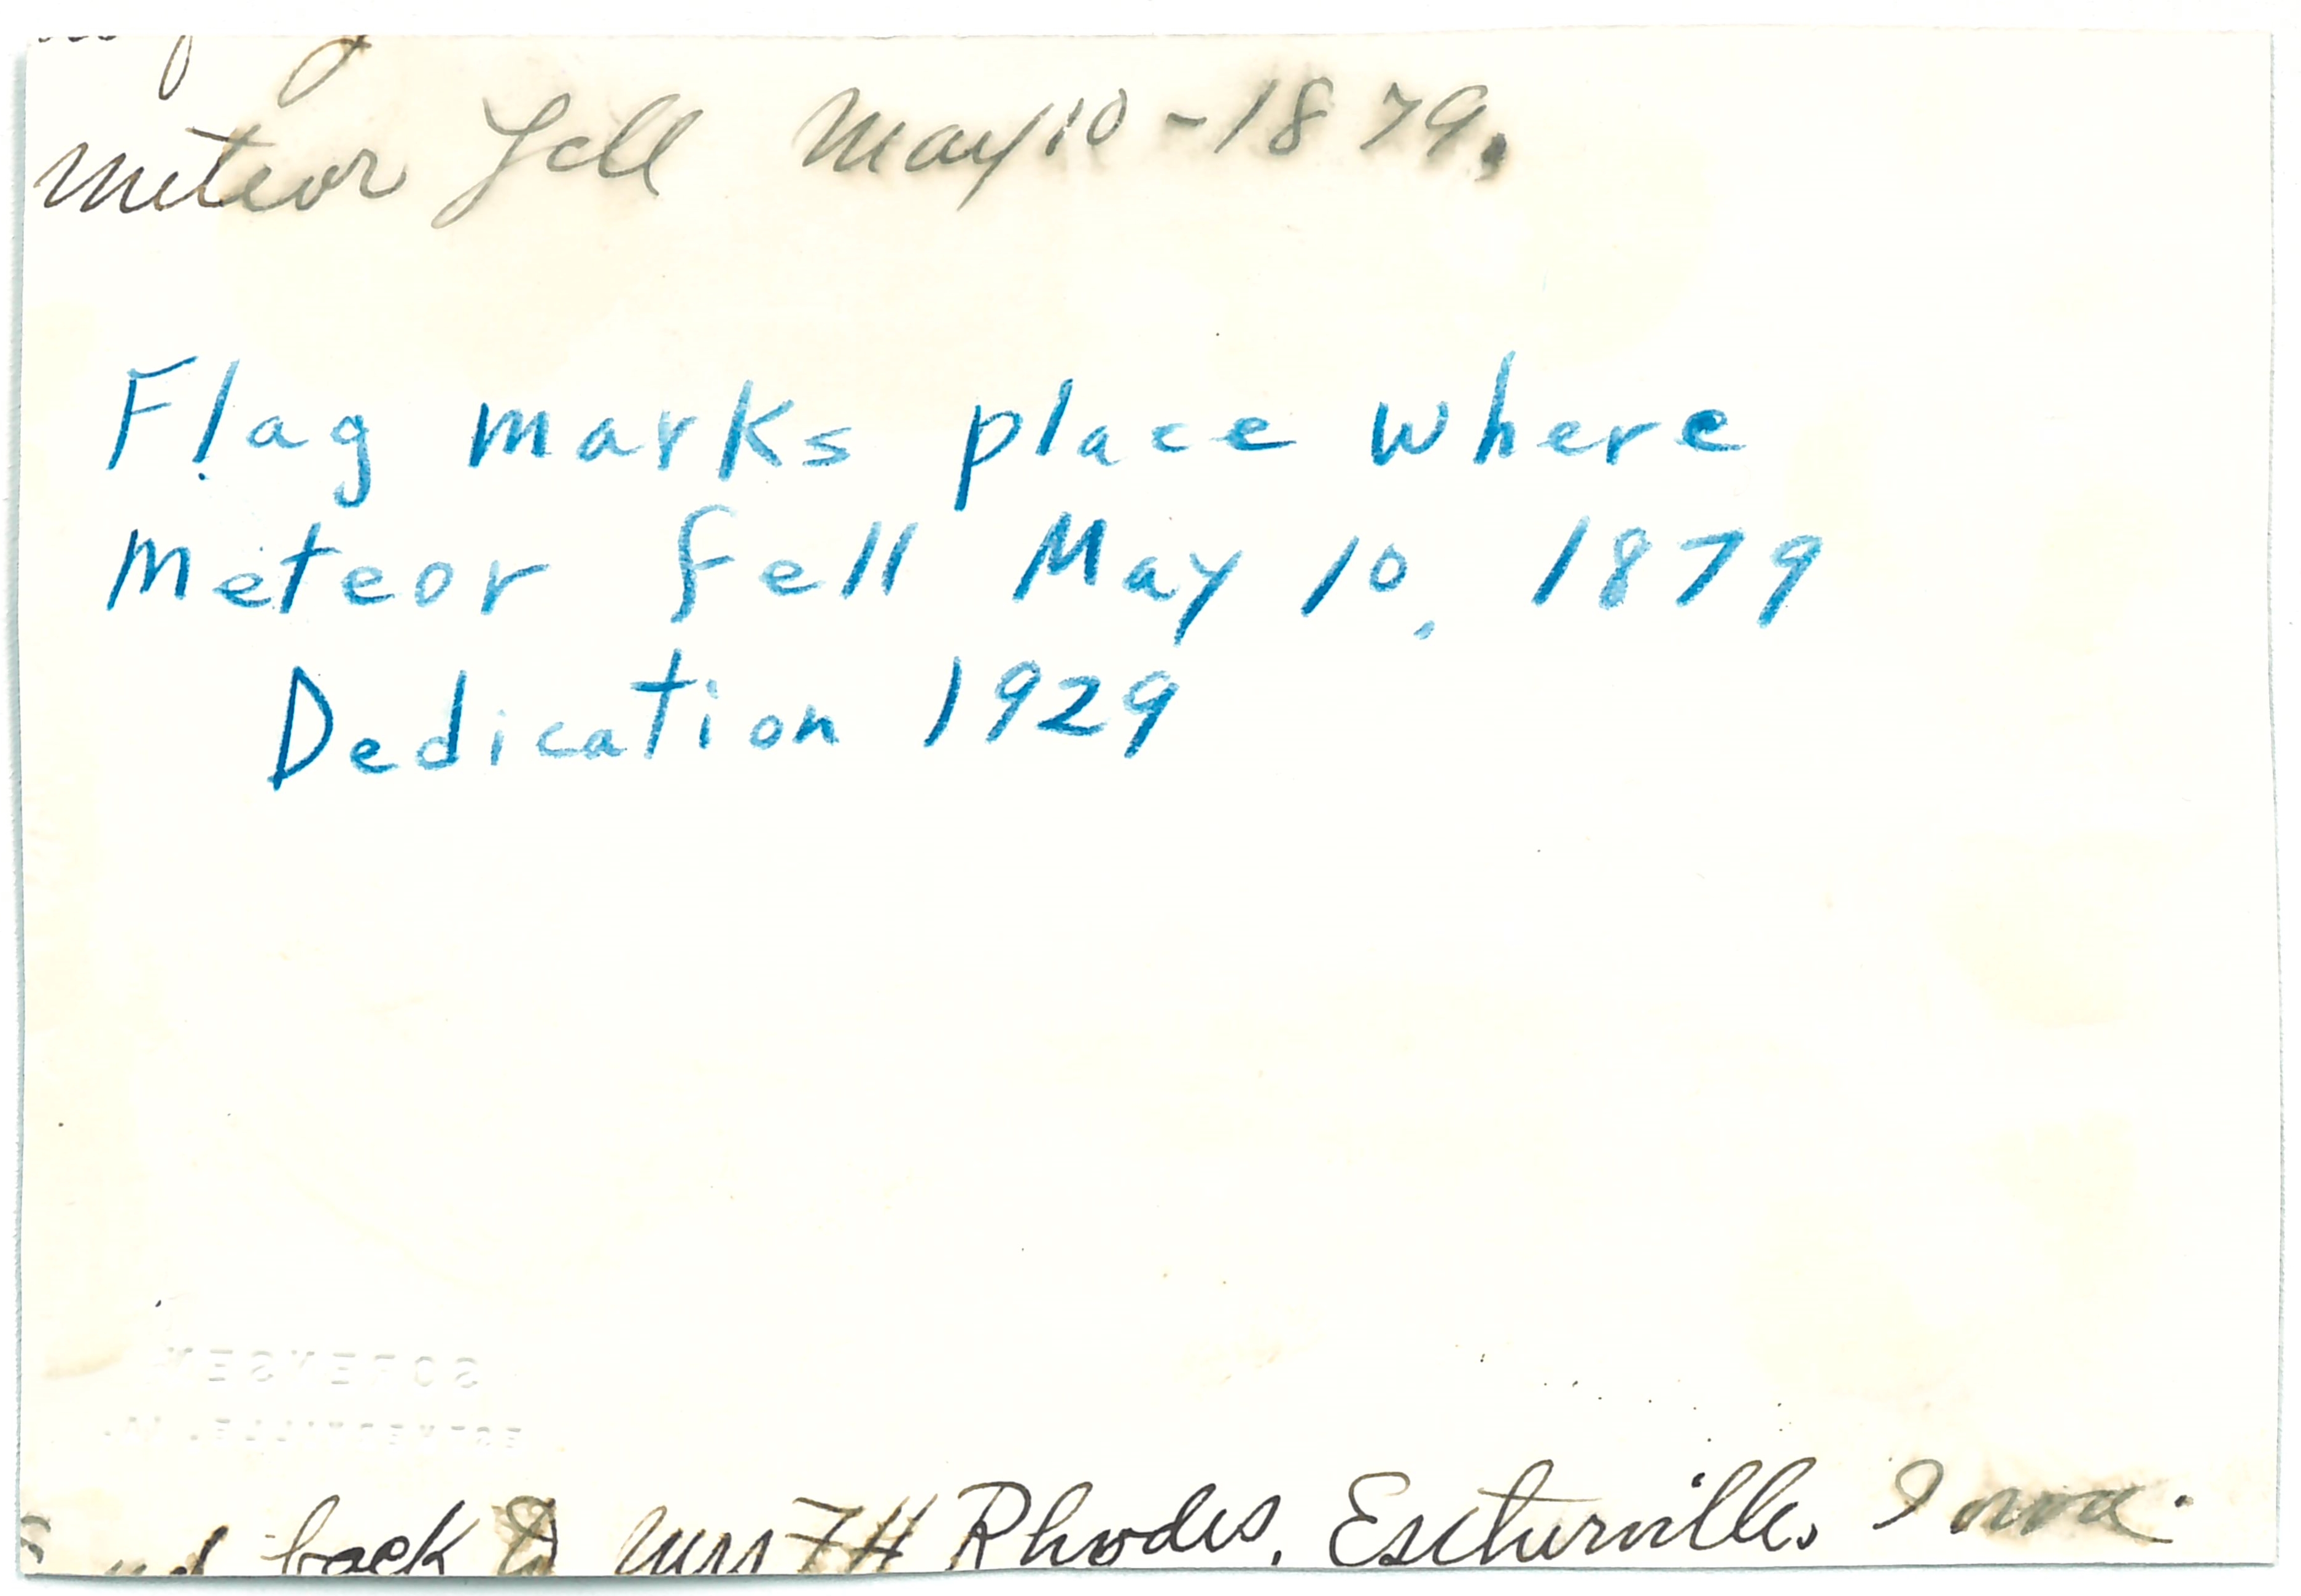 Meteor fell May 10-1879.
Flag marks place where
Meteor fell May 10, 1879
Dedication 1929
SORENSEN
ESTHERVILLE, IA.
Send back to Mrs F H Rhodes, Estherville, Iowa.